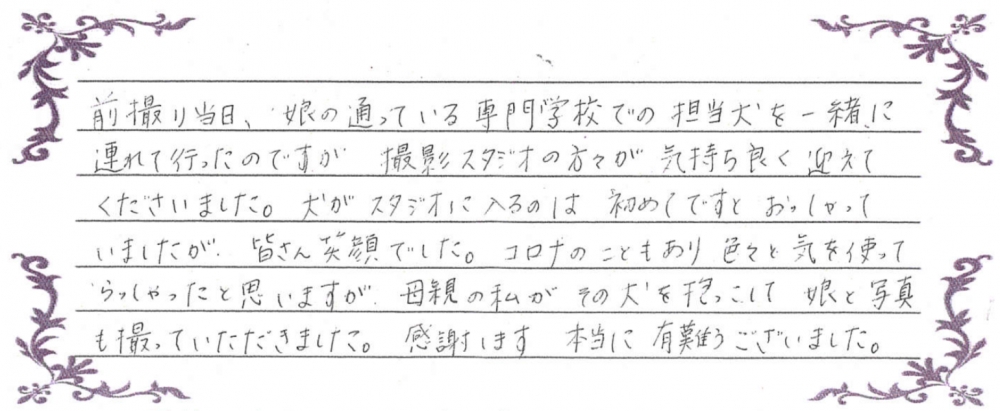 前撮り当日、娘の通っている専門学校での担当犬を一緒に
連れて行ったのですが 撮影スタジオの方々が 気持ち良く 迎えて
くださいました。犬がスタジオに入るのは 初めてですと おっしゃって
いましたが、皆さん笑顔でした。コロナのこともあり 色々と気を使って
らっしゃったと思いますが、母親の私が その犬を抱っこして 娘と写真
も撮っていただきました。 感謝します 本当に 有難うございました。